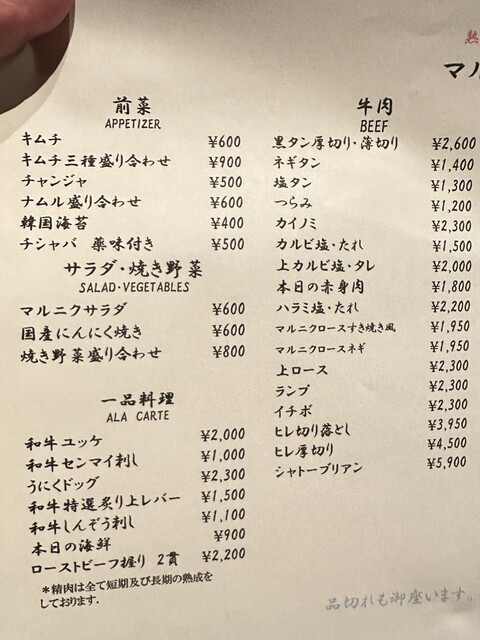 前菜
APPETIZER
キムチ ¥600
キムチ三種盛り合わせ ¥900
チャンジャ ¥500
ナムル盛り合わせ ¥600
韓国海苔 ¥400
チシャバ 薬味付き ¥500
サラダ・焼き野菜
SALAD・VEGETABLES
マルニクサラダ ¥600
国産にんにく焼き ¥600
焼き野菜盛り合わせ ¥800
一品料理
ALA CARTE
和牛ユッケ ¥2,000
和牛センマイ刺し ¥1,000
うにくドッグ ¥2,300
和牛特選炙り上レバー ¥1,500
和牛しんぞう刺し ¥1,100
本日の海鮮 ¥900
ローストビーフ握り 2貫 ¥2,200
*精肉は全て短期及び長期の熟成を
しております.
熟
マル
牛肉
BEEF
黒タン厚切り・薄切り ¥2,600
ネギタン ¥1,400
塩タン ¥1,300
つらみ ¥1,200
カイノミ ¥2,300
カルビ塩・たれ ¥1,500
上カルビ塩・タレ ¥2,000
本日の赤身肉 ¥1,800
ハラミ塩・たれ ¥2,200
マルニクロースすき焼き風 ¥1,950
マルニクロースネギ ¥1,950
上ロース ¥2,300
ランプ ¥2,300
イチボ ¥2,300
ヒレ切り落とし ¥3,950
ヒレ厚切り ¥4,500
シャトーブリアン ¥5,900
品切れも御座います。